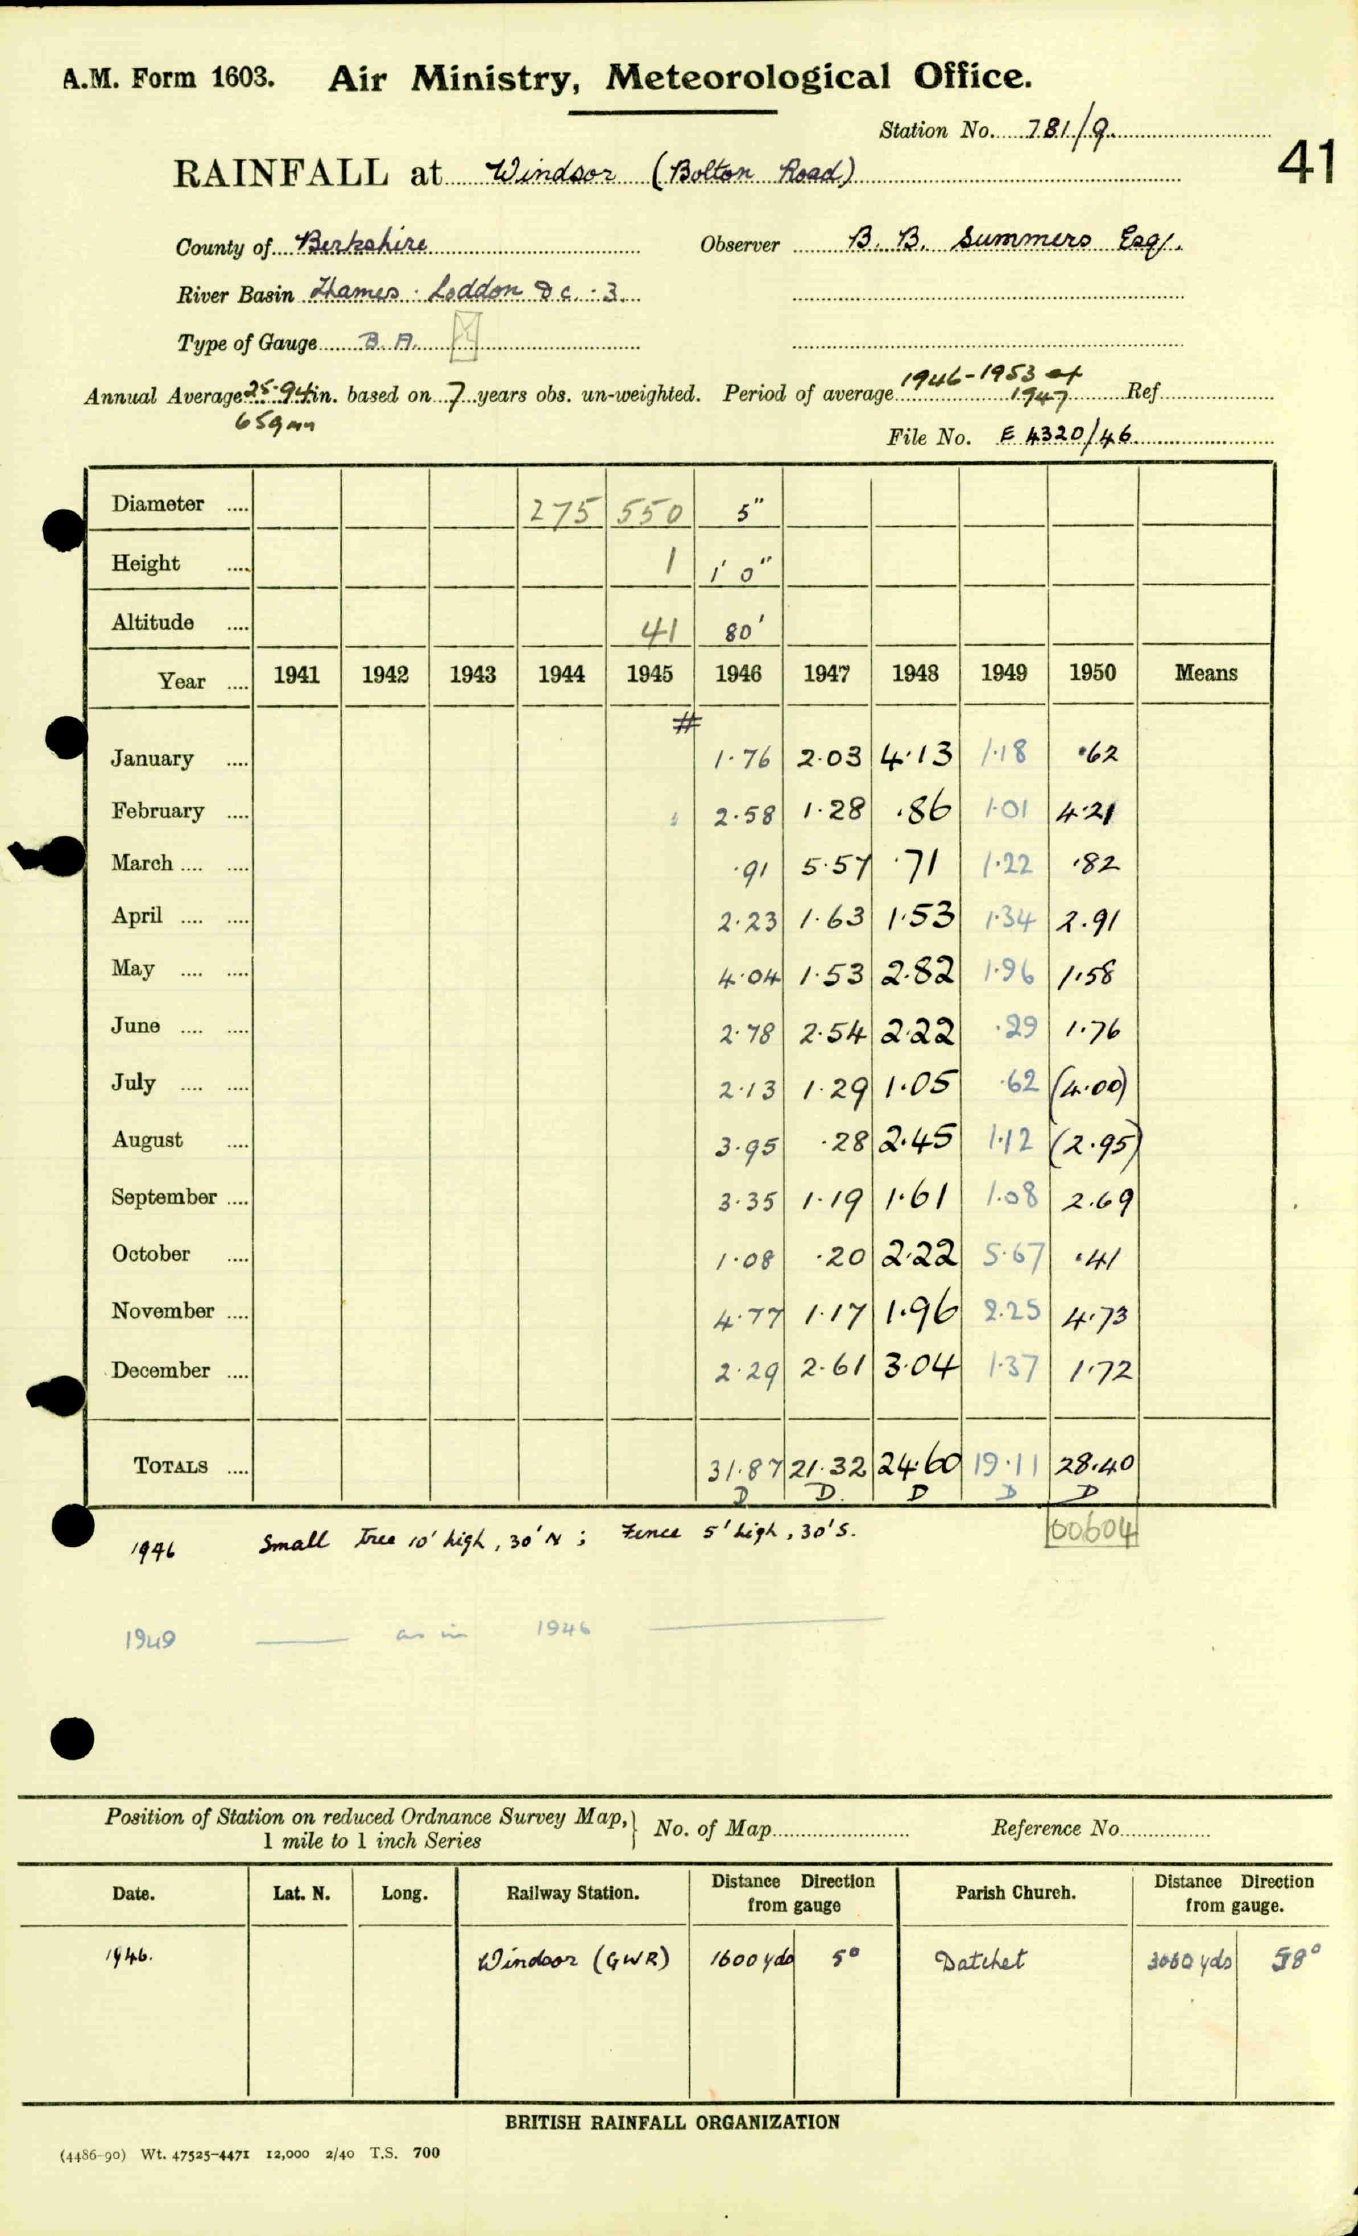 A.M. Form 1603. Air Ministry, Meteorological Office.
Station No. 781/9.
41
RAINFALL at Windsor (Bolton Road)
County of Berkshire Observer B. B. Summers Esq.
River Basin Thames. Loddon &c. .3.
Type of Gauge B. A.
Annual Average 25.94 in. based on 7 years obs. un-weighted. Period of average 1946-1953 ex 1947 Ref
659mm
File No. E 4320/46
Diameter .... 275 550 5"
Height .... 1 1' 0"
Altitude .... 41 80'
Year .... 1941 1942 1943 1944 1945 1946 1947 1948 1949 1950 Means
#
January .... 1.76 2.03 4.13 1.18 .62
February .... 2.58 1.28 .86 1.01 4.21
March .... .... .91 5.57 .71 1.22 .82
April .... .... 2.23 1.63 1.53 1.34 2.91
May .... .... 4.04 1.53 2.82 1.96 1.58
June .... .... 2.78 2.54 2.22 .29 1.76
July .... .... 2.13 1.29 1.05 .62 (4.00)
August .... 3.95 .28 2.45 1.12 (2.95)
September .... 3.35 1.19 1.61 1.08 2.69
October .... 1.08 .20 2.22 5.67 .41
November .... 4.77 1.17 1.96 2.25 4.73
December .... 2.29 2.61 3.04 1.37 1.72
TOTALS .... 31.87 21.32 24.60 19.11 28.40
D D. D D D
00604
1946 Small tree 10' high, 30' N ; Fence 5' high, 30' S.
1949 —— as in 1946 ——
Position of Station on reduced Ordnance Survey Map, } No. of Map Reference No.
1 mile to 1 inch Series
Date. Lat. N. Long. Railway Station. Distance Direction from gauge Parish Church. Distance Direction from gauge.
1946. Windsor (GWR) 1600 yds 5° Datchet yds 58°
BRITISH RAINFALL ORGANIZATION
(4486-90) Wt. 47525-4471 12,000 2/40 T.S. 700